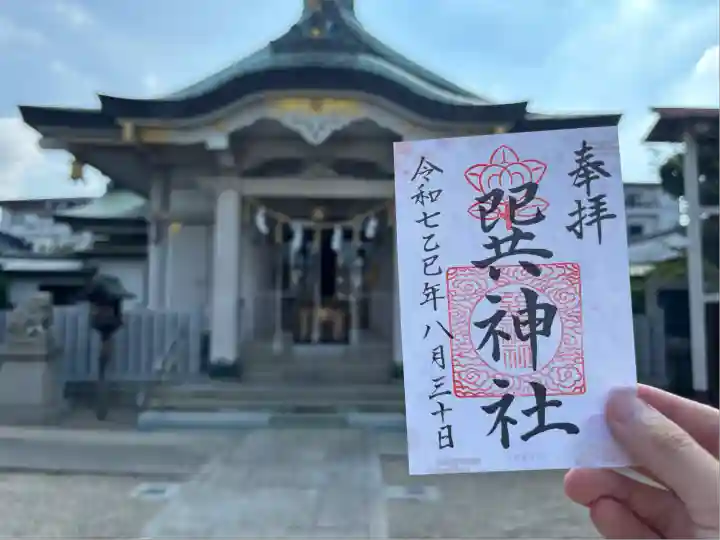 奉拝
巽神社
令和七乙巳年八月三十日